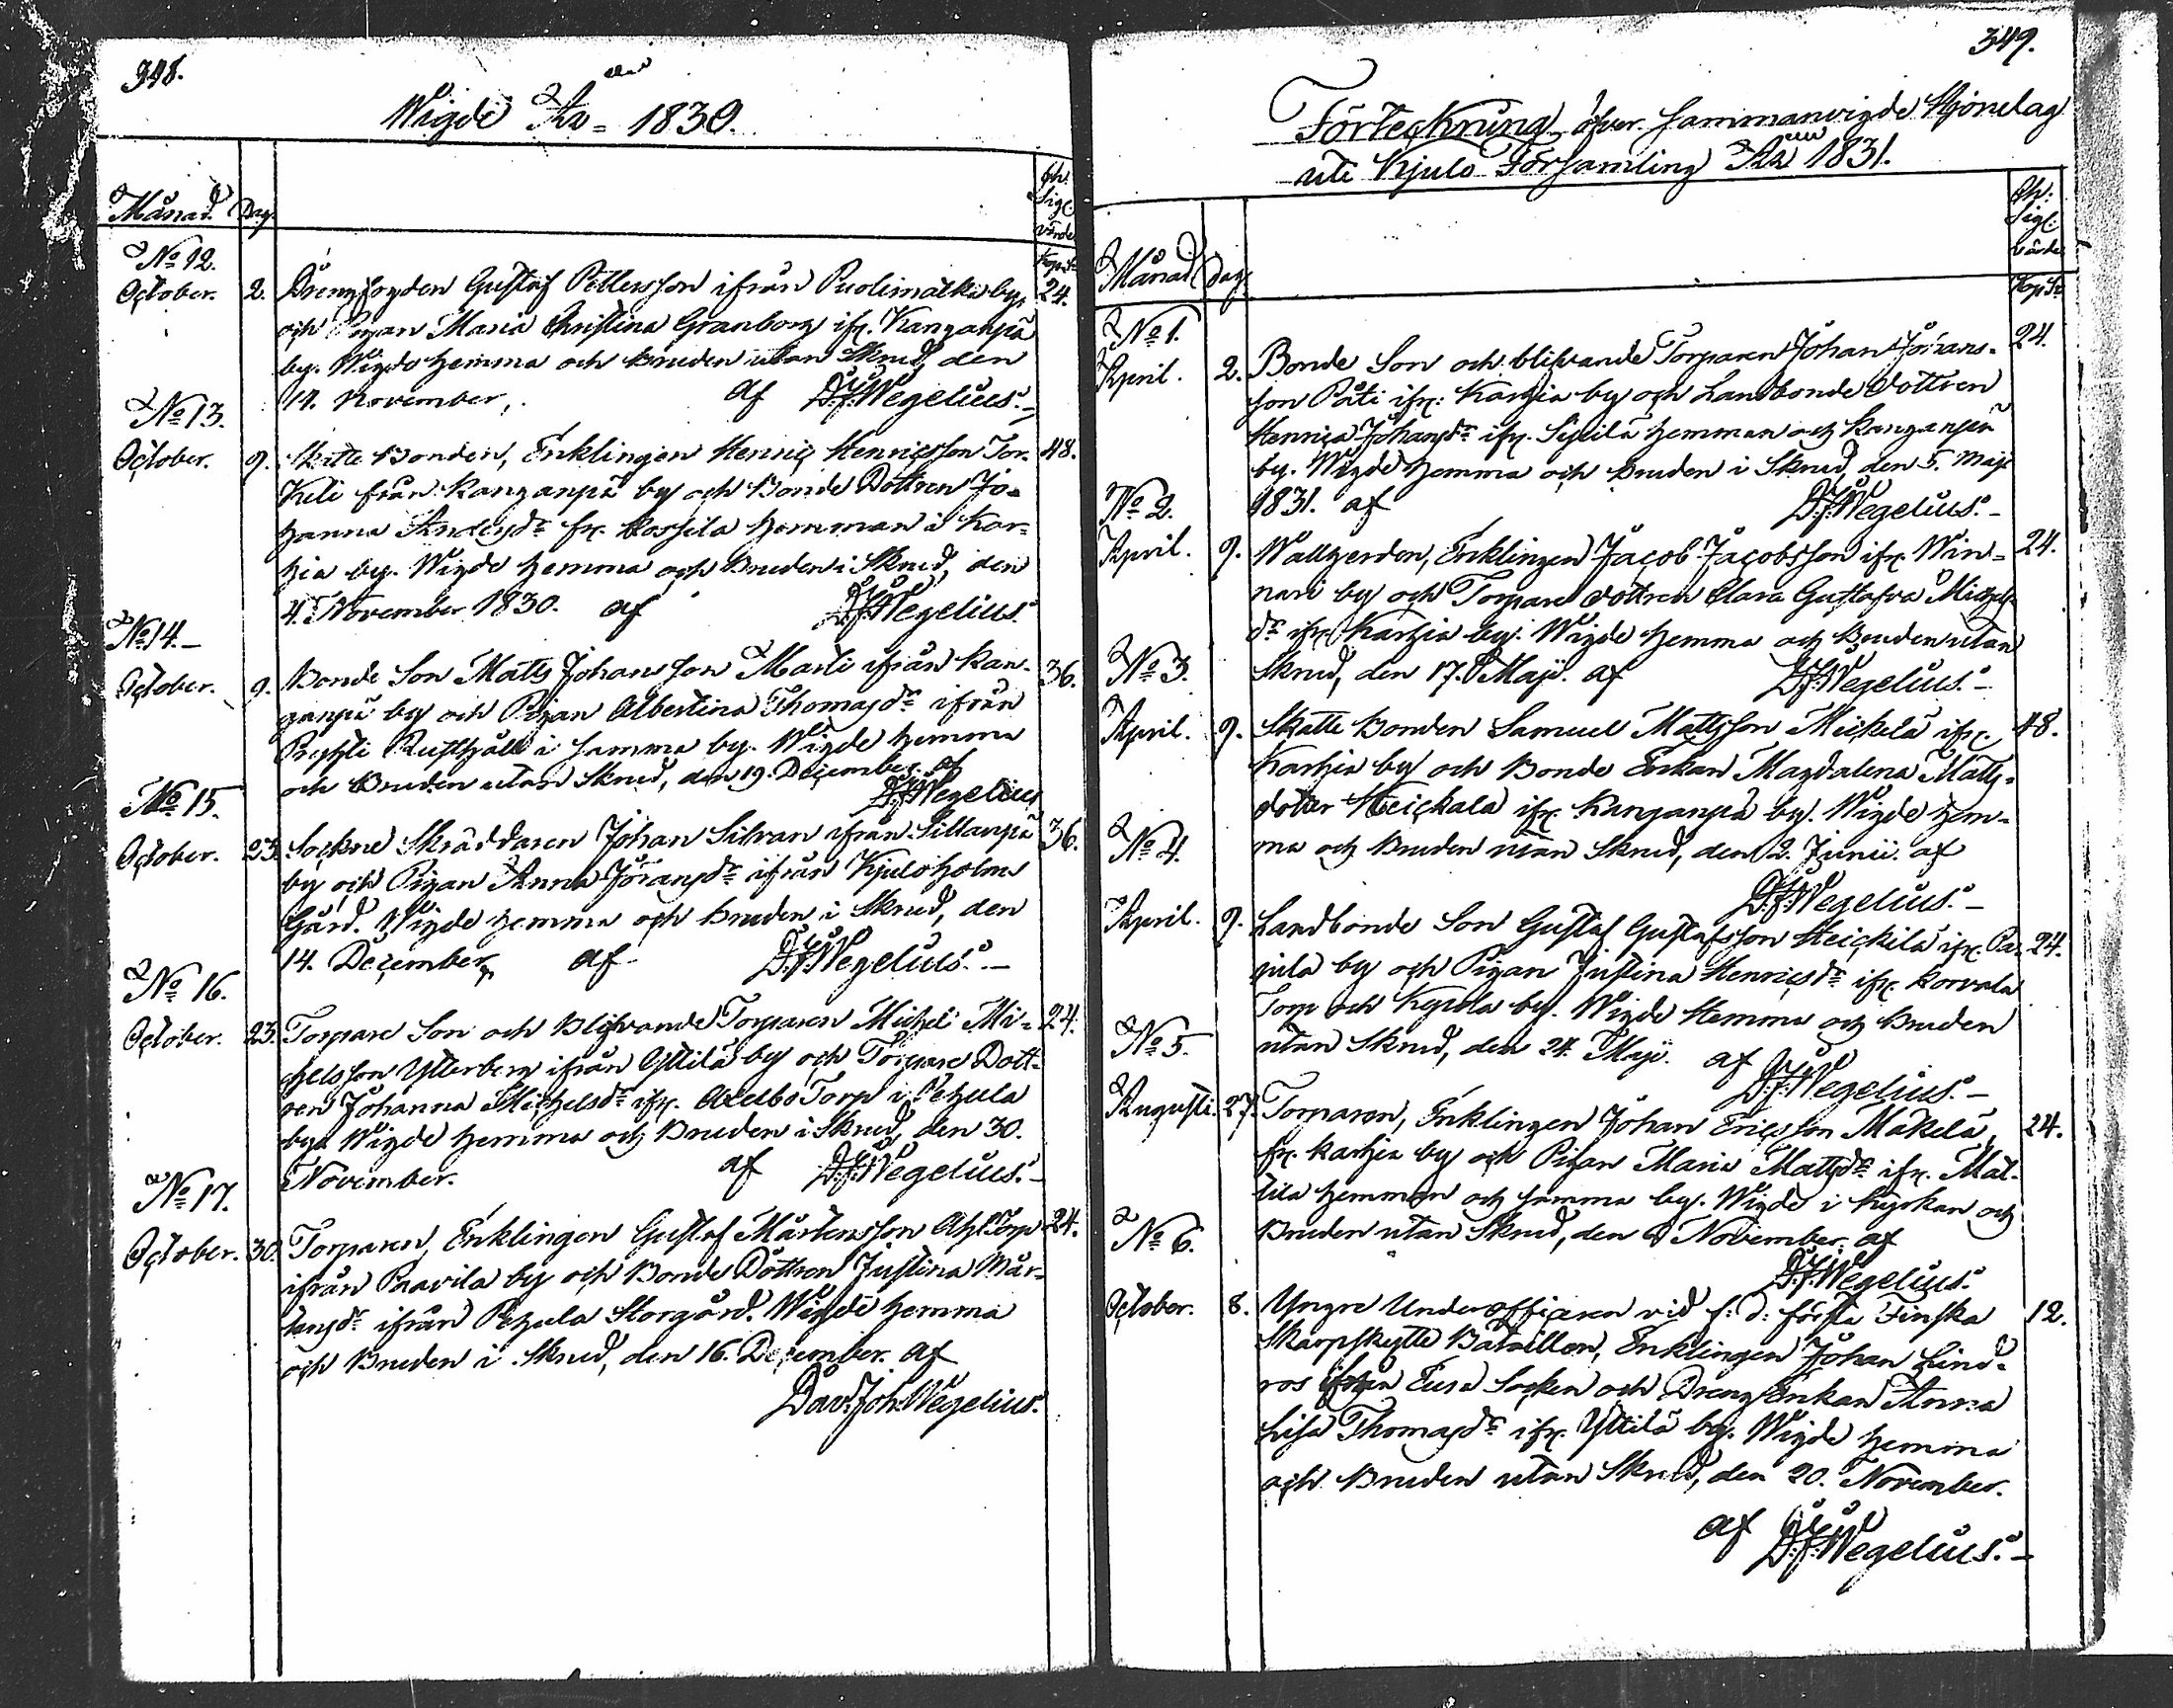 348.
Wigde År 1830.
Månad Dag Ch. Sigl. värde
Kop. Sr
No 12.
October. 2. Drengfogden Gustaf Pettersson ifrån Puolimatka by 24.
och Pigan Maria Christina Granborg ifr. Kanganpä
by. Wigde hemma och Bruden utan Skrud, den
14. November, af D.J. Wegelius.
No 13.
October. 9. Skatte Bonden, Enklingen Henric Henricsson Tor- 48.
keli från Kanganpä by och Bonde Dottren Jo-
hanna Andersdr fr. Cossila hemman i Kar-
hia by. Wigde hemma och Bruden i Skrud, den
4. November 1830. af D.J. Wegelius.
No 14.
October. 9. Bonde Son Matts Johansson Marti ifrån Kan- 36.
ganpä by och Pigan Albertina Thomasdr ifrån
Prusti Rusthåll i samma by. Wigde hemma
och Bruden utan Skrud, den 19. December af
D.J. Wegelius
No 15.
October. 23. Sockne Skräddaren Johan Silvan ifrån Sillanpä 36.
by och Pigan Anna Göransdr ifrån Kjuloholms
Gård. Wigde hemma och Bruden i Skrud, den
14. December, af D.J. Wegelius.
No 16.
October. 23. Torpare Son och Blifvande Torparen Michel Mi- 24.
chelsson Ytterberg ifrån Yttilä by och Torpare Dott-
ren Johanna Michelsdr ifr. Axelbo Torp i Pehula
by. Wigde hemma och Bruden i Skrud, den 30.
November. af D.J. Wegelius.
No 17.
October. 30. Torparen, Enklingen Gustaf Mårtensson Torp 24.
ifrån Paavila by och Bonde Dottren Justina Mår-
tensdr ifrån Pehula Storgård. Wigde hemma
och Bruden i Skrud, den 16. December. af
Dav. Joh. Wegelius.
349.
Förteckning öfver Sammanvigde Hjonelag
uti Kjulo Församling År 1831.
Månad Dag Ch: Sigl. värde
Kop. Sr
No 1.
April. 2. Bonde Son och blifvande Torparen Johan Johans- 24.
son Päti ifr: Karhia by och Landbonde dottren
Henrica Johansdr ifr. Sipilä hemman och Kanganpä
by. Wigde hemma och Bruden i Skrud, den 5. Maji
1831. af D.J. Wegelius.
No 2.
April. 9. Wallgerden, Enklingen Jacob Jacobsson ifr. Win- 24.
nari by och Torpare dottren Clara Gustafva Michels-
dr ifr. Karhia by. Wigde hemma och Bruden utan
Skrud, den 17. Maji. af D.J. Wegelius.
No 3.
April. 9. Skatte Bonden Samuel Mattsson Mickelä ifr. 48.
Karhia by och Bonde Enkan Magdalena Matts-
dotter Heickala ifr. Kanganpä by. Wigde hem-
ma och Bruden utan Skrud, den 2. Junii. af
D.J. Wegelius.
No 4.
April. 9. Landbonde Son Gustaf Gustafsson Heickilä ifr. Pa- 24.
jula by och Pigan Justina Henricsdr ifr. Korvala
Torp och Kepola by. Wigde Hemma och Bruden
utan Skrud, den 24. Maji. af D.J. Wegelius.
No 5.
Augusti. 27. Torparen, Enklingen Johan Ericsson Mäkelä, 24.
fr. Karhia by och Pigan Maria Mattsdr ifr. Mat-
tila hemman och samma by. Wigde i Kyrkan och
Bruden utan Skrud, den November. af
D.J. Wegelius.
No 6.
October. 8. Yngre Underofficeren vid f. d. första Finska 12.
Skarpskytte Bataillon, Enklingen Johan Lind-
ros ifrån Eura Socken och Dreng Enkan Anna
Lisa Thomasdr ifr. Yttilä by. Wigde hemma
och Bruden utan Skrud, den 20. November.
af D.J. Wegelius.